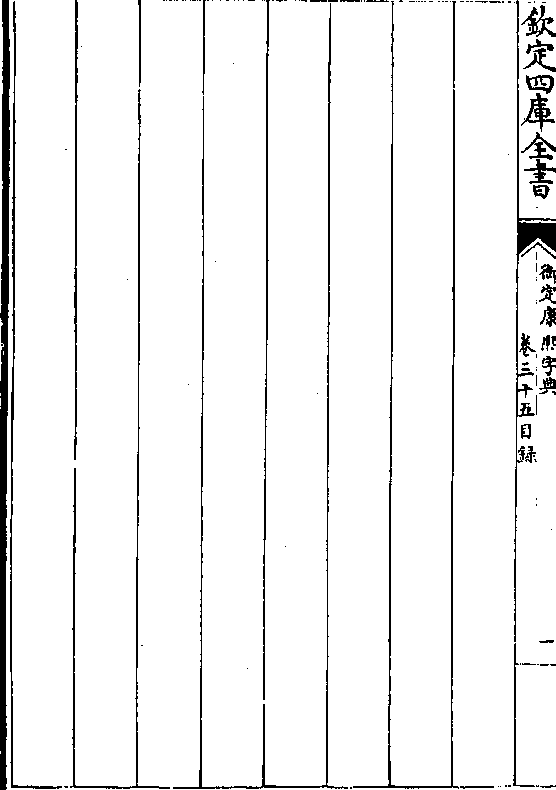 欽定四庫全書
御定康熙字典
卷三十五目録
一